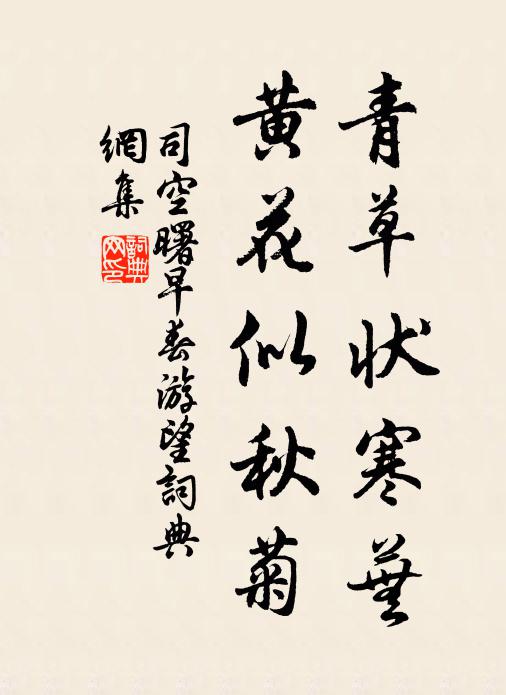 青草状寒蕪
黄花似秋菊
司空曙早春游望詞典
網集
詞典
网印